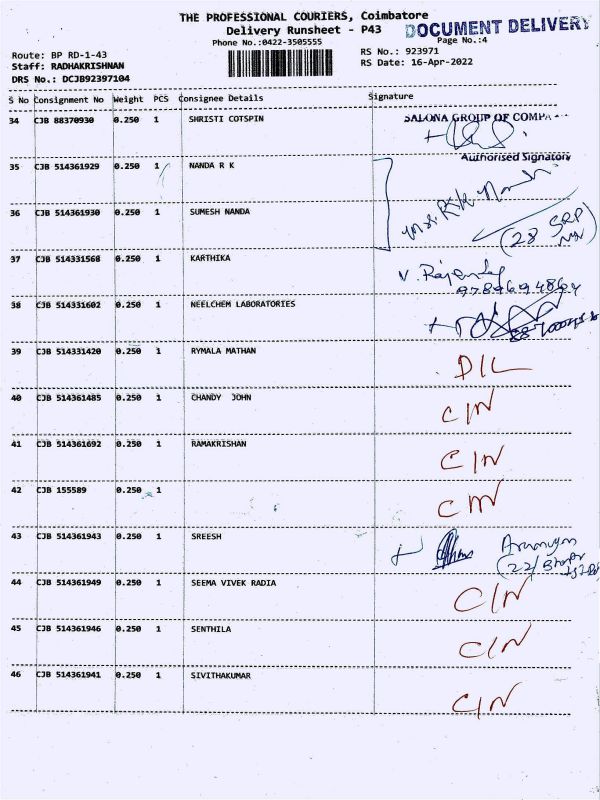 THE PROFESSIONAL COURIERS, Coimbatore
Delivery Runsheet - P43
DOCUMENT DELIVERY
Phone No.:0422-3505555
Page No.:4
Route: BP RD-1-43
RS No.: 923971
Staff: RADHAKRISHNAN
RS Date: 16-Apr-2022
DRS No.: DCJB92397104
S No Consignment No Weight PCS Consignee Details Signature
34 CJB 88370930 0.250 1 SHRISTI COTSPIN SALONA GROUP OF COMPA
Authorised Signatory
35 CJB 514361929 0.250 1 NANDA R K
36 CJB 514361930 0.250 1 SUMESH NANDA
(28 SRP
37 CJB 514331568 0.250 1 KARTHIKA
9789694864
38 CJB 514331602 0.250 1 NEELCHEM LABORATORIES
39 CJB 514331420 0.250 1 RYMALA MATHAN D/L
40 CJB 514361485 0.250 1 CHANDY JOHN C/N
41 CJB 514361692 0.250 1 RAMAKRISHAN C/N
42 CJB 155589 0.250 1 C/N
43 CJB 514361943 0.250 1 SREESH
44 CJB 514361949 0.250 1 SEEMA VIVEK RADIA C/N
45 CJB 514361946 0.250 1 SENTHILA C/N
46 CJB 514361941 0.250 1 SIVITHAKUMAR C/N